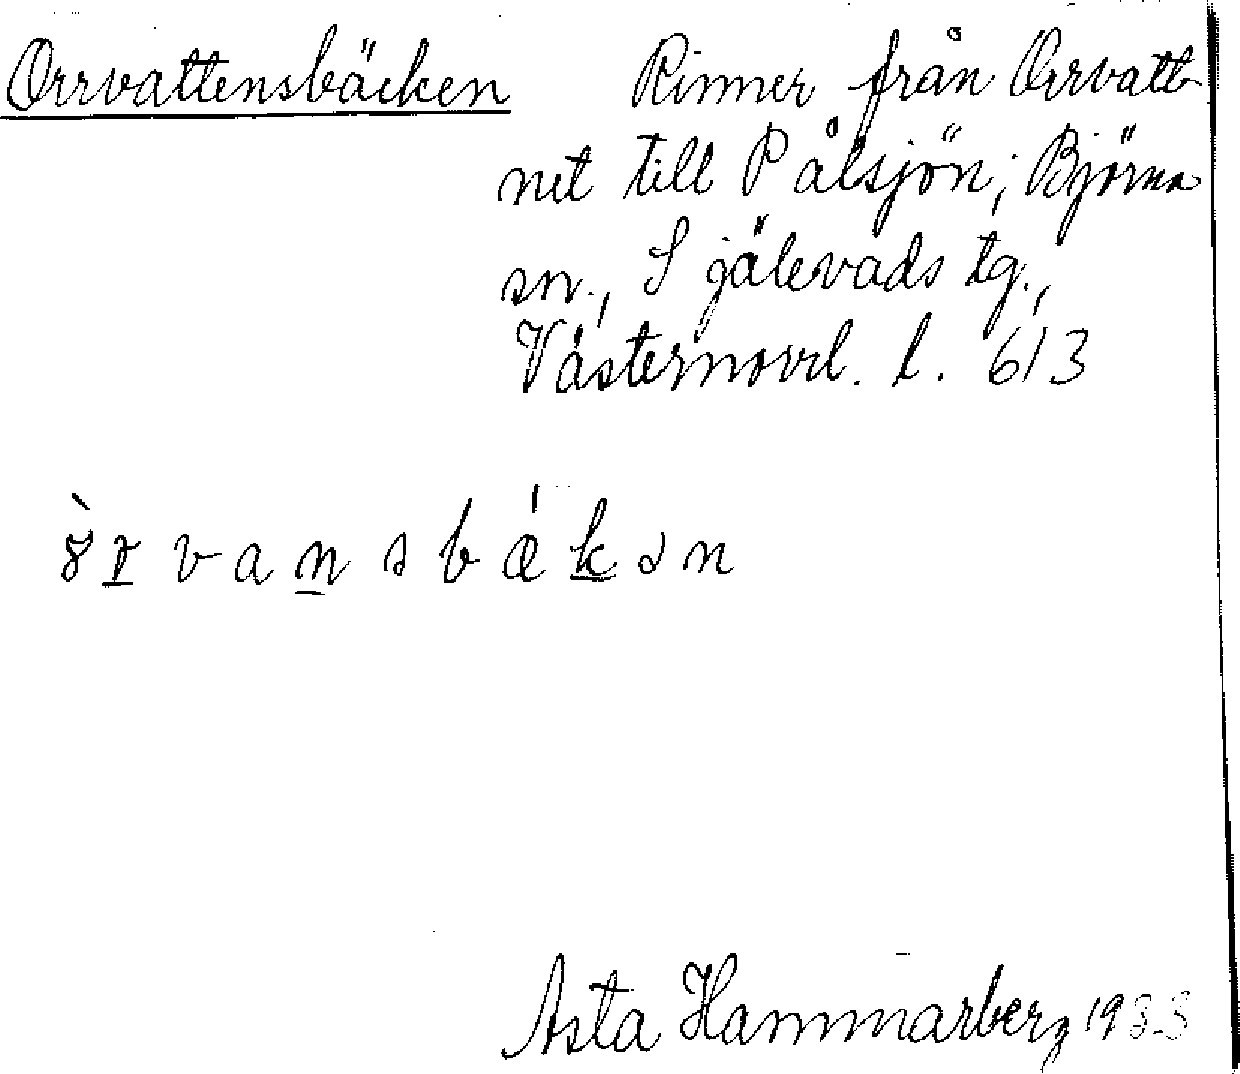 Orrvattensbäcken Rinner från Orrvatt-
net till Pålsjön, Björna
sn., Själevads tg.,
Västernorrl. l. 613
Asta Hammarberg